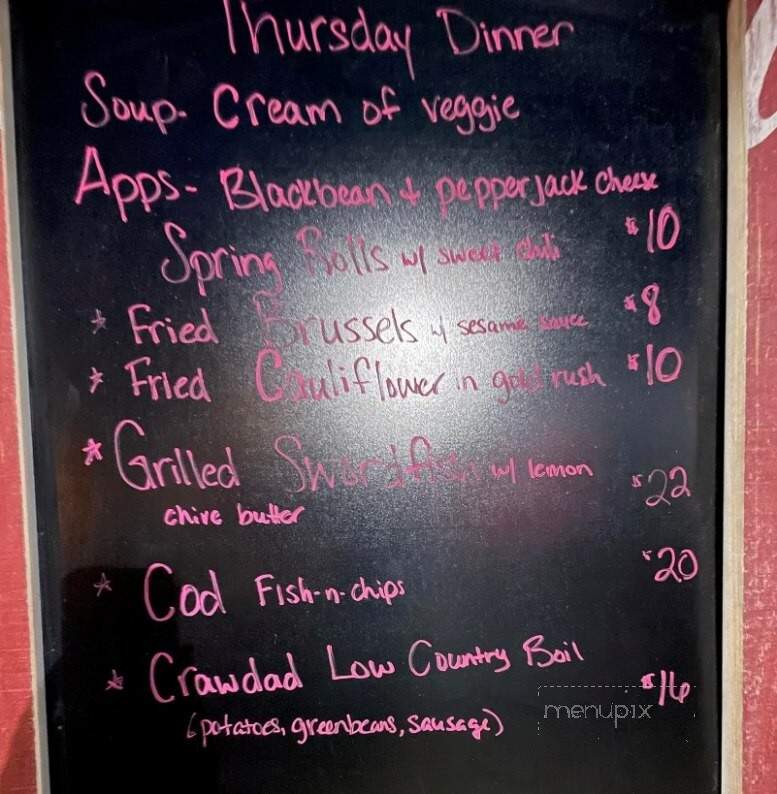 Thursday Dinner
Soup- Cream of veggie
Apps- Blackbean + pepperjack cheese
Spring Rolls w/ sweet chili $10
* Fried Brussels w/ sesame sauce $8
* Fried Cauliflower in gold rush $10
* Grilled Swordfish w/ lemon $22
chive butter
* Cod Fish-n-chips $20
* Crawdad Low Country Boil $16
(potatoes, greenbeans, sausage)
menupix